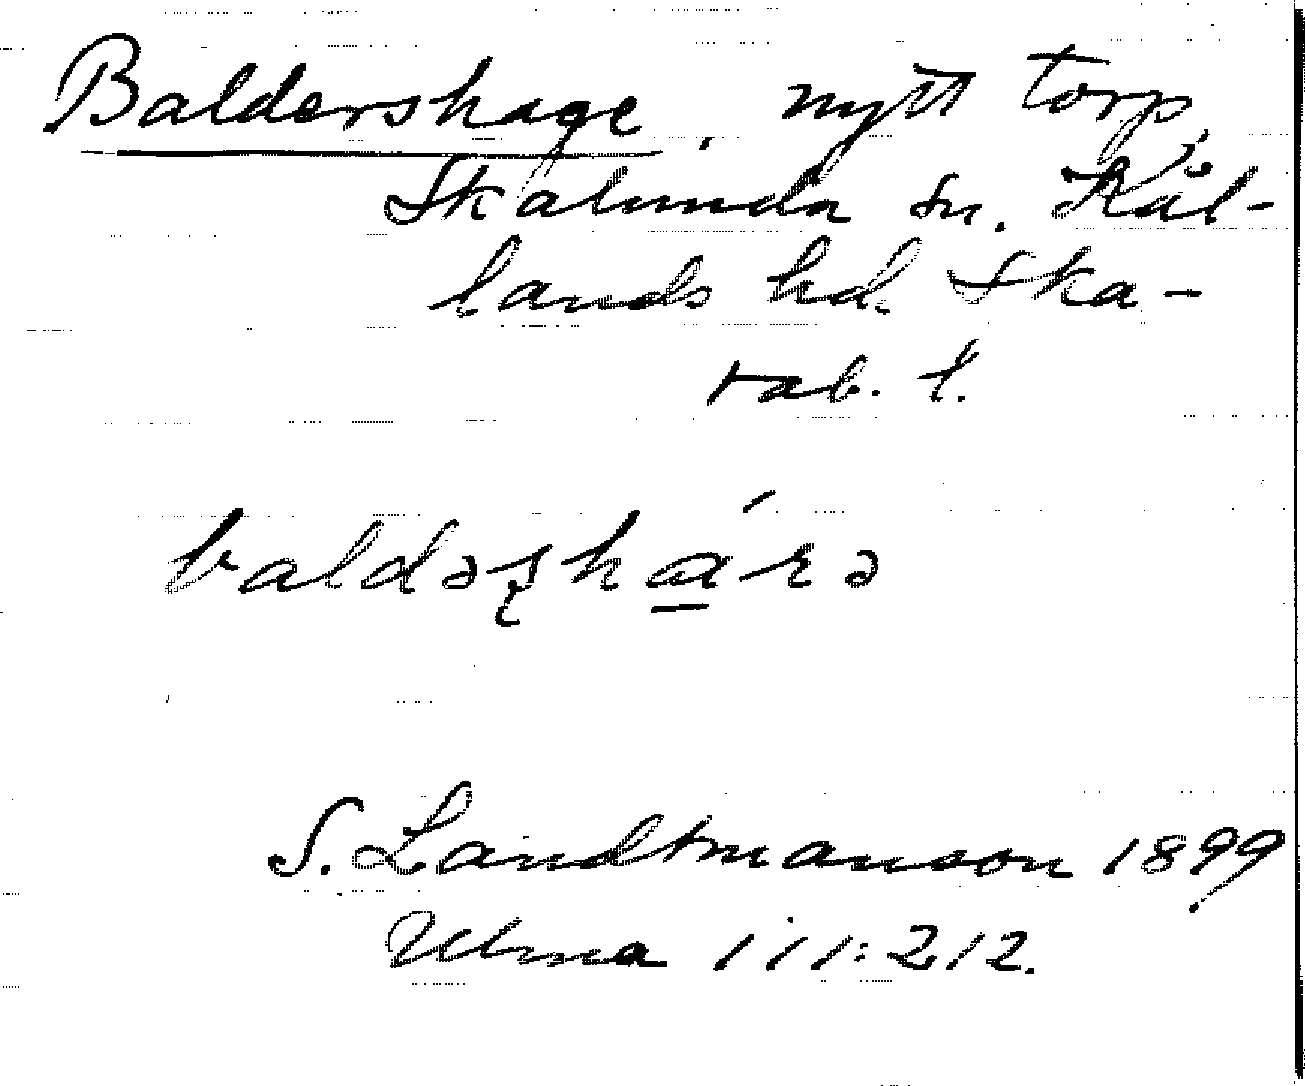 Baldershage, nytt torp,
Skalunda sn. Kål-
lands hd. Ska-
rab. l.
baldəʂhárə
S. Landtmanson 1899
Ulma 111:212.